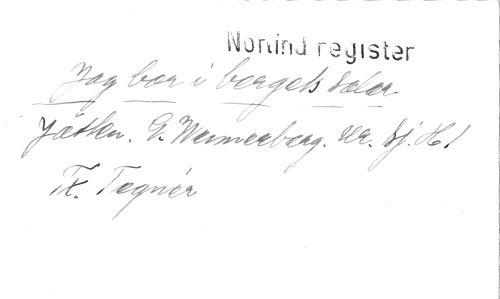 Norlind register
Jag bor i bergets salar
Jätten. G. Wennerberg. Ur. Sj. H. 1
Tx. Tegnér